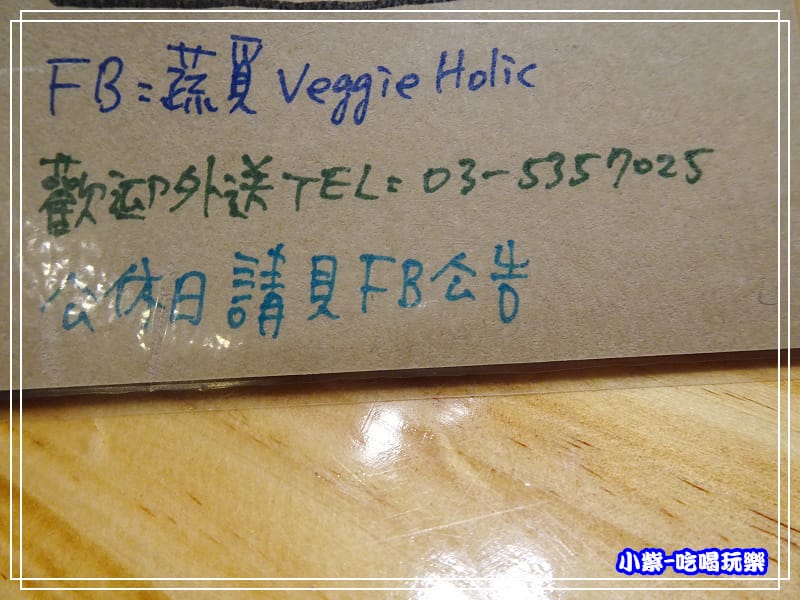 FB=蔬覓 Veggie Holic
歡迎外送 TEL=03-5357025
公休日請見FB公告
小紫-吃喝玩樂